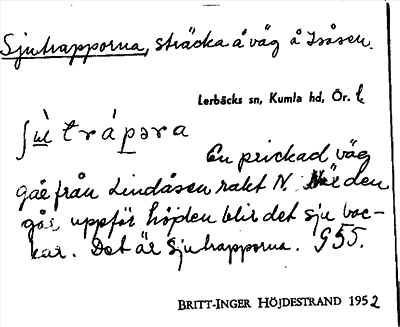 Sjutrapporna, sträcka å väg å Isåsen.
Lerbäcks sn, Kumla hd, Ör. l.
ʃùtrápəra
En prickad väg
går från Lindåsen rakt N. När den
går uppför höjden blir det sju bac-
kar. Det är Sjutrapporna. G55.
BRITT-INGER HÖJDESTRAND 1952